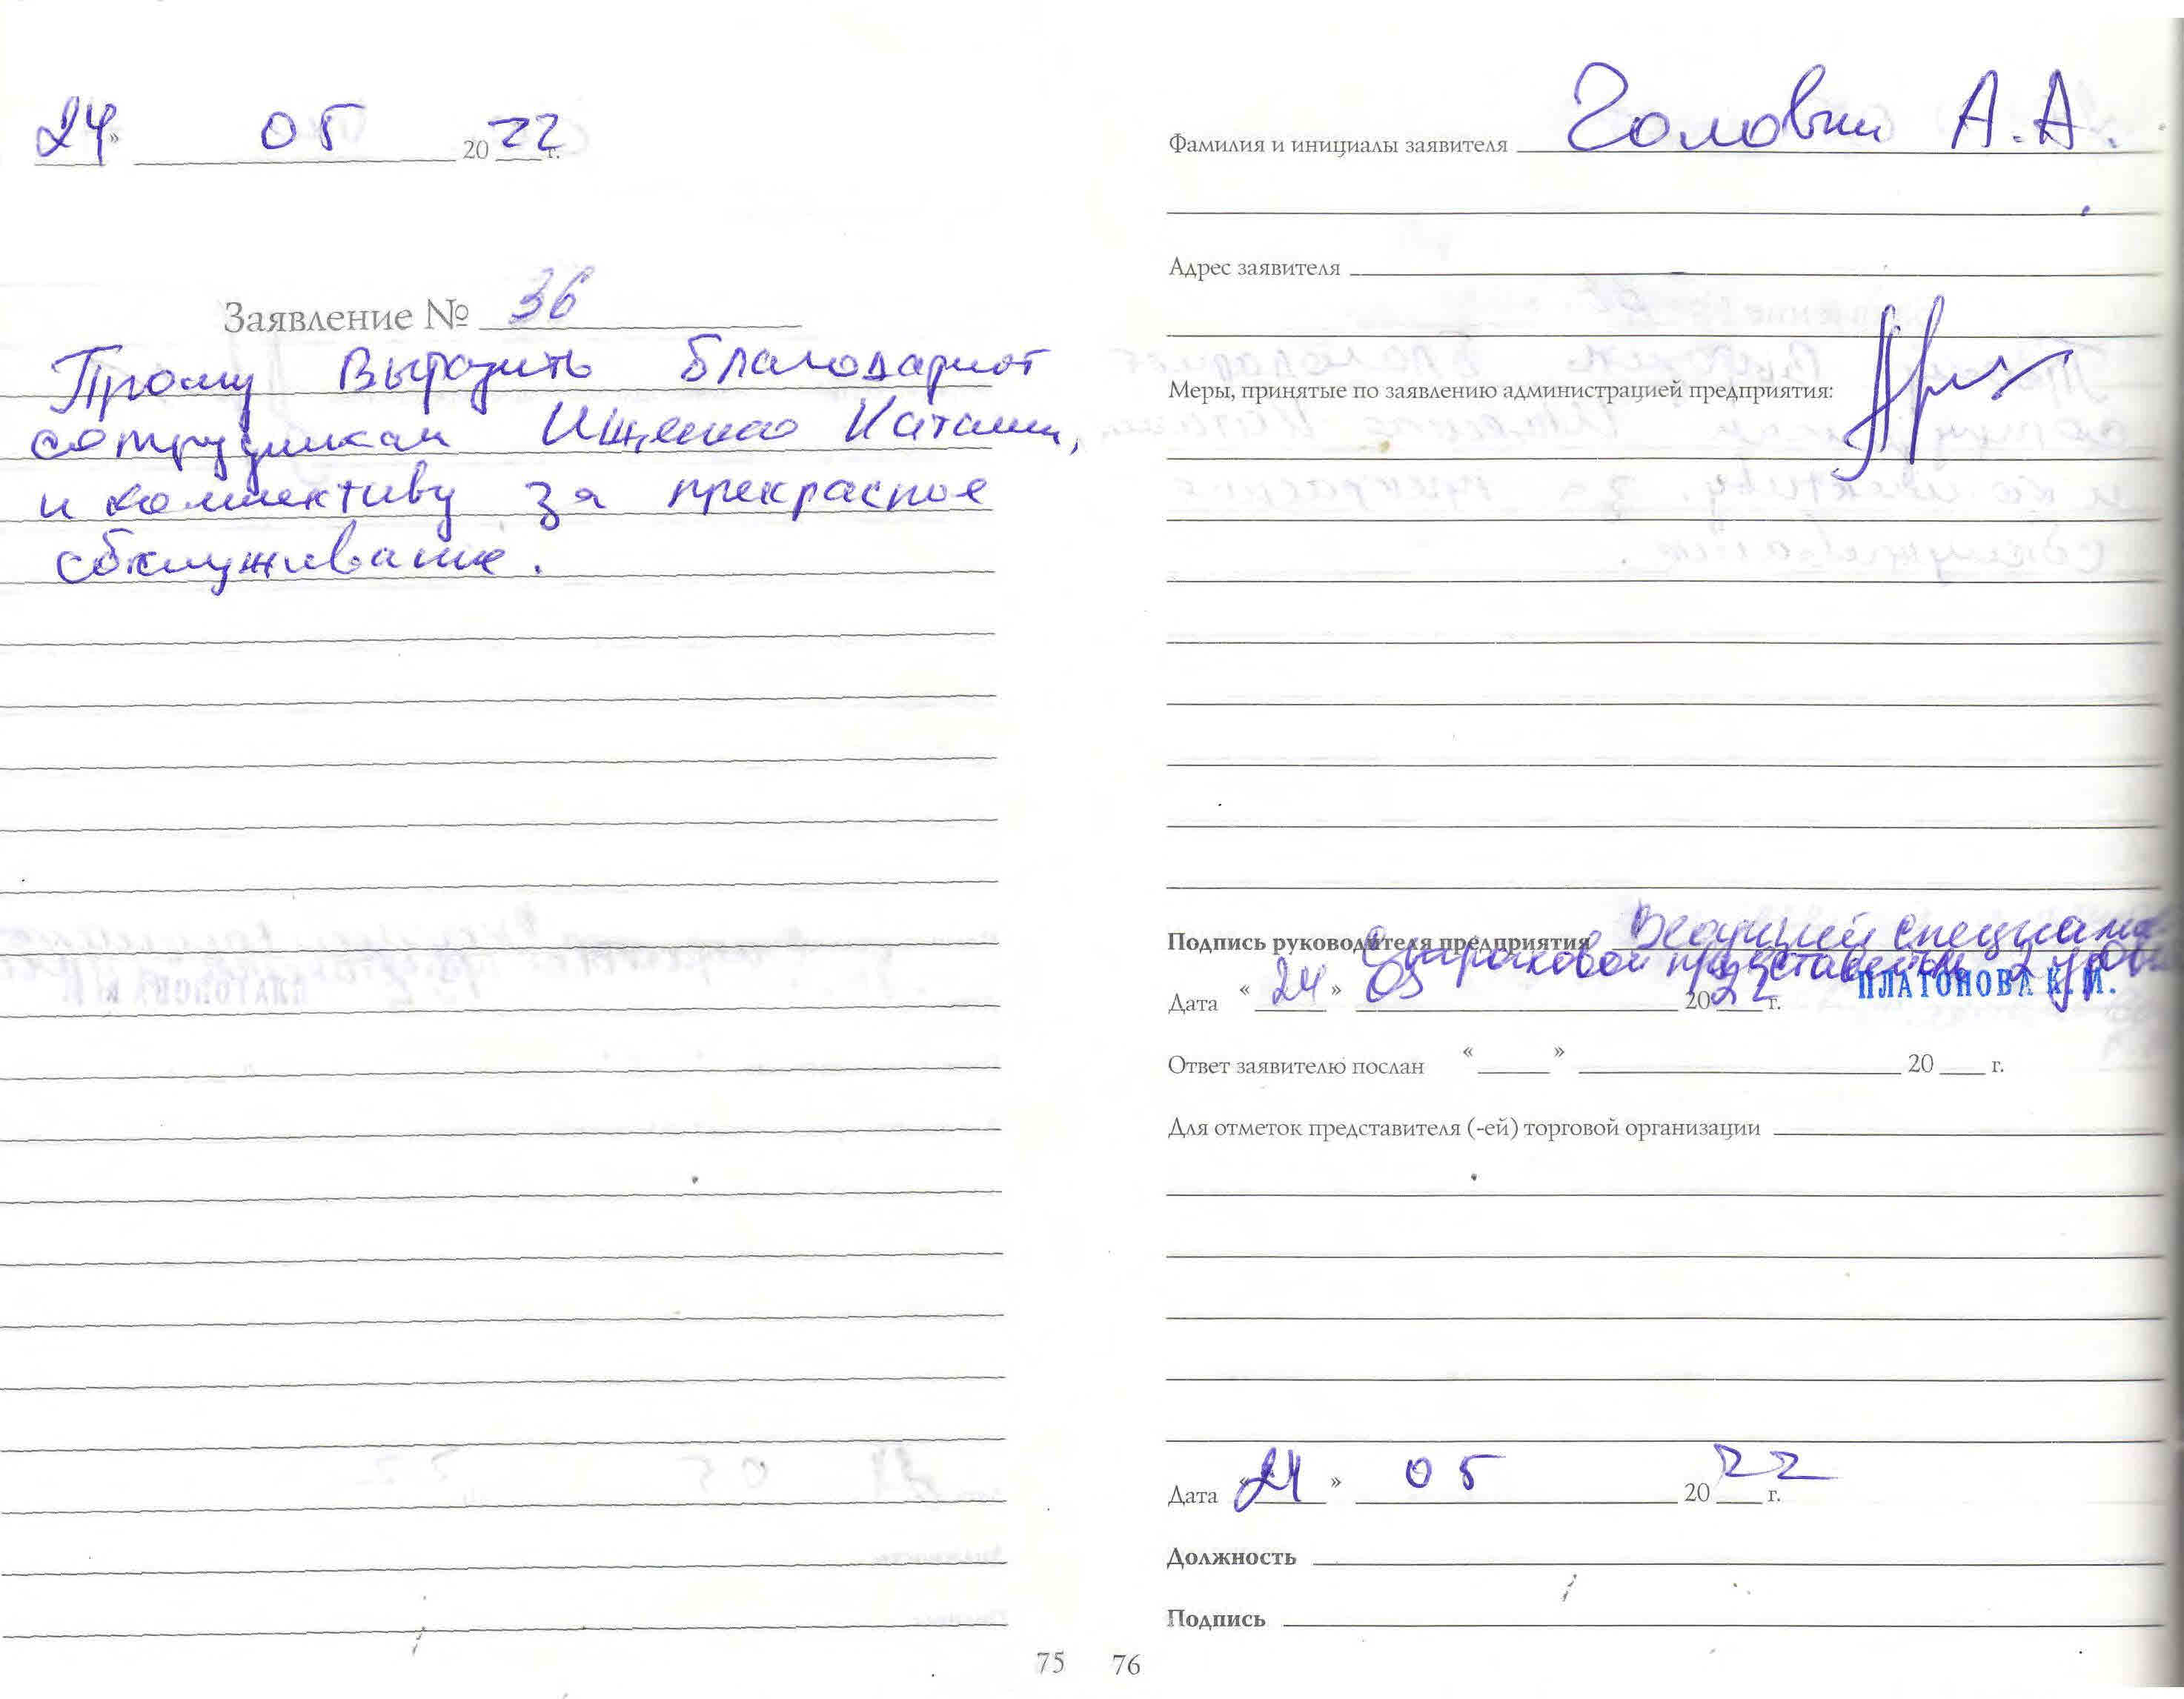 24» 05 2022 г.
Заявление № 36
Прошу Выразить благодарност
сотрудникам Ищенко Наталии,
и коллективу за прекрасное
обслуживание.
75
Фамилия и инициалы заявителя Головин А.А.
Адрес заявителя
Меры, принятые по заявлению администрацией предприятия:
Подпись руководителя предприятия Ведущий специали
страховой представитель 2 уров
Дата «24» 05 2022 г. ПЛАТОНОВА К.И.
Ответ заявителю послан « » 20 г.
Для отметок представителя (-ей) торговой организации
Дата «24» 05 2022 г.
Должность
Подпись
76